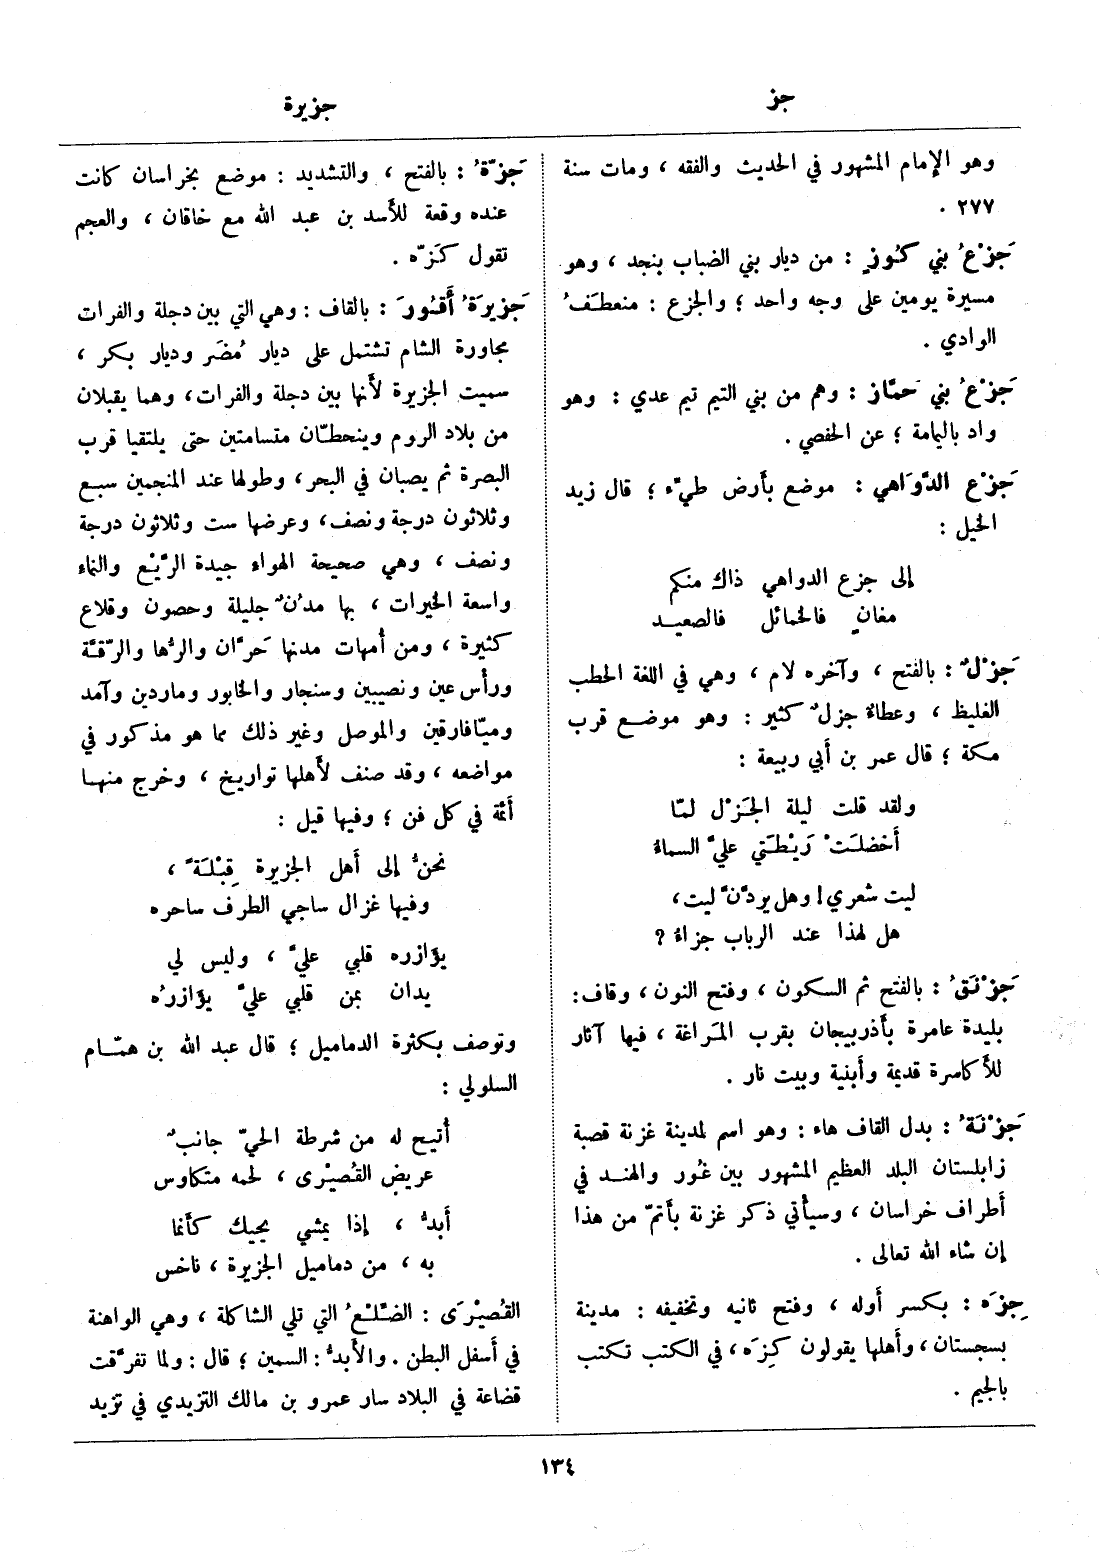 جز
جزيرة
وهو الإمام المشهور في الحديث والفقه ، ومات سنة
٢٧٧ .
جَزْعُ بني كُوزٍ : من ديار بني الضباب بنجد ، وهو
مسيرة يومين على وجه واحد ؛ والجزع : منعطَفُ
الوادي .
جَزْعُ بني حَمَّاز : وهم من بني التيم تيم عدي : وهو
واد باليامة ؛ عن الحفصي .
جَزْع الدَّوَاهي : موضع بأرض طيّء ؛ قال زيد
الخيل :
إلى جزع الدواهي ذاك منكم
مغانٍ فالخمائل فالصعيد
جَزْلٌ : بالفتح ، وآخره لام ، وهي في اللغة الحطب
الغليظ ، وعطاءٌ جزلٌ كثير : وهو موضع قرب
مكة ؛ قال عمر بن أبي ربيعة :
ولقد قلت ليلة الجَزْل لمّا
أخضلَتْ رَيْطَتي عليَّ السماءُ
ليت شعري! وهل يردَّنَّ ليت،
هل لهذا عند الرباب جزاءُ ?
جَزْنَقُ : بالفتح ثم السكون ، وفتح النون ، وقاف:
بليدة عامرة بأذربيجان بقرب المَراغة ، فيها آثار
للأكاسرة قديمة وأبنية وبيت نار .
جَزْنَةُ : بدل القاف هاء : وهو اسم لمدينة غزنة قصبة
زابلستان البلد العظيم المشهور بين غُور والهند في
أطراف خراسان ، وسيأتي ذكر غزنة بأتمّ من هذا
إن شاء الله تعالى .
جِزَه : بكسر أوله ، وفتح ثانيه وتخفيفه : مدينة
بسجستان ، وأهلها يقولون كِزَه ، في الكتب تكتب
بالجيم .
جَزّةُ : بالفتح ، والتشديد : موضع بخراسان كانت
عنده وقعة للأسد بن عبد الله مع خاقان ، والعجم
تقول كَزّه .
جَزيرَةُ أَقُورَ : بالقاف : وهي التي بين دجلة والفرات
مجاورة الشام تشتمل على ديار مُضَر وديار بكر ،
سميت الجزيرة لأنها بين دجلة والفرات ، وهما يقبلان
من بلاد الروم وينحطّان متسامتين حتى يلتقيا قرب
البصرة ثم يصبان في البحر ، وطولها عند المنجمين سبع
وثلاثون درجة ونصف ، وعرضها ست وثلاثون درجة
ونصف ، وهي صحيحة الهواء جيدة الرَّيْع والنماء
واسعة الخيرات ، بها مدُنٌ جليلة وحصون وقلاع
كثيرة ، ومن أمهات مدنها حَرَّان والرُّها والرَّقَّة
ورأس عين ونصيبين وسنجار والخابور وماردين وآمد
وميّافارقين والموصل وغير ذلك مما هو مذكور في
مواضعه ، وقد صنف لأهلها تواريخ ، وخرج منها
أئمة في كل فن ؛ وفيها قيل :
نحنُّ إلى أهل الجزيرة قِبْلَةً ،
وفيها غزال ساجي الطرف ساحره
يؤازره قلبي عليَّ ، وليس لي
يدان بمن قلبي عليَّ يؤازرُه
وتوصف بكثرة الدماميل ؛ قال عبد الله بن همّام
السلولي :
أُتيح له من شرطة الحيّ جانبٌ
عريض القُصَيْرى ، لحمه متكاوس
أبدُّ ، إذا يمشي يحيك كأنما
به ، من دماميل الجزيرة ، ناخس
القُصَيْرَى : الضّلَعُ التي تلي الشاكلة ، وهي الواهنة
في أسفل البطن . والأبدُّ : السمين ؛ قال : ولما تفرَّقت
قضاعة في البلاد سار عمرو بن مالك التزيدي في تزيد
١٣٤